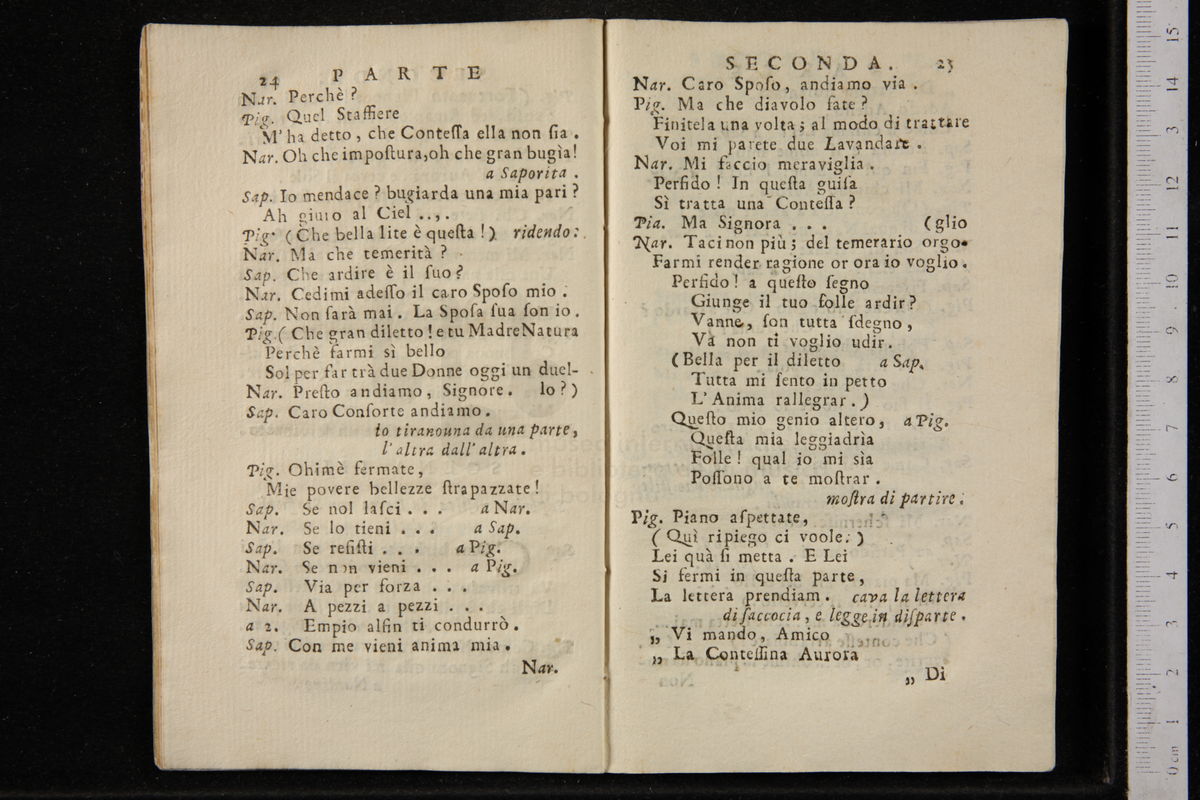 24 PARTE
Nar. Perchè ?
Pig. Quel Staffiere
M' ha detto , che Conteſſa ella non ſia .
Nar. Oh che impoſtura,oh che gran bugìa!
a Saporita .
Sap. Io mendace ? bugiarda una mia pari ?
Ah giuro al Ciel ..,.
Pig. ( Che bella lite è queſta ! ) ridendo :
Nar. Ma che temerità ?
Sap. Che ardire è il ſuo ?
Nar. Cedimi adeſſo il caro Spoſo mio .
Sap. Non ſarà mai . La Spoſa ſua ſon io .
Pig.( Che gran diletto ! e tu Madre Natura
Perchè farmi sì bello
Sol per far trà due Donne oggi un duel-
Nar. Preſto andiamo , Signore . lo ? )
Sap. Caro Conſorte andiamo .
lo tirano una da una parte ,
l' altra dall' altra .
Pig. Ohimè fermate ,
Mie povere bellezze ſtrapazzate !
Sap. Se nol laſci . . . a Nar.
Nar. Se lo tieni . . . a Sap.
Sap. Se reſiſti . . . a Pig.
Nar. Se non vieni . . . a Pig.
Sap. Via per forza . . .
Nar. A pezzi a pezzi . . .
a 2. Empio alfin ti condurrò .
Sap. Con me vieni anima mia .
Nar.
SECONDA. 25
Nar. Caro Spoſo , andiamo via .
Pig. Ma che diavolo fate ?
Finitela una volta ; al modo di trattare
Voi mi parete due Lavandare .
Nar. Mi faccio meraviglia .
Perfido ! In queſta guiſa
Sì tratta una Conteſſa ?
Pig. Ma Signora . . . (glio
Nar. Taci non più ; del temerario orgo-
Farmi render ragione or ora io voglio .
Perfido ! a queſto ſegno
Giunge il tuo folle ardir ?
Vanne , ſon tutta ſdegno ,
Và non ti voglio udir .
( Bella per il diletto a Sap.
Tutta mi ſento in petto
L' Anima rallegrar . )
Queſto mio genio altero , a Pig.
Queſta mia leggiadrìa
Folle ! qual io mi sìa
Poſſono a te moſtrar .
moſtra di partire .
Pig. Piano aſpettate ,
( Quì ripiego ci voole . )
Lei quà ſi metta . E Lei
Si fermi in queſta parte ,
La lettera prendiam . cava la lettera
di ſaccocia , e legge in diſparte .
„ Vi mando , Amico
„ La Conteſſina Aurora
„ Di